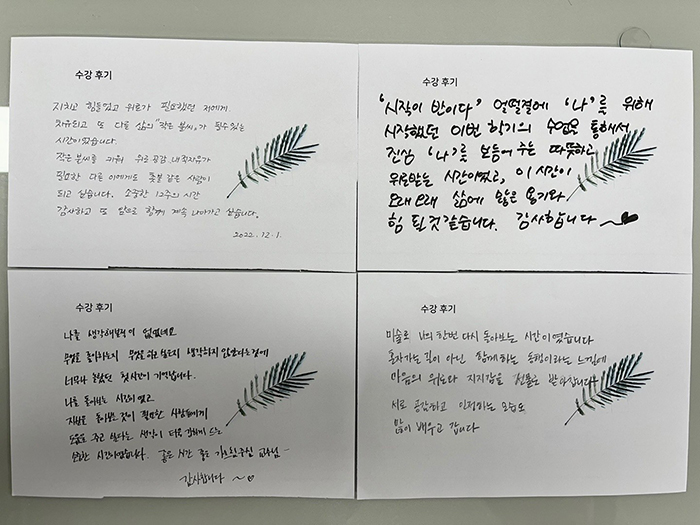 수강 후기
지치고 힘들었고 위로가 필요했던 저에게
치유되고 또 다른 삶의 "작은 불씨"가 될수있는
시간이었습니다.
작은 불씨를 키워 위로 공감 내적치유가
필요한 다른 이에게도 횃불 같은 사람이
되고 싶습니다. 소중한 12주의 시간
감사하고 또 앞으로 함께 계속 나아가고 싶습니다.
2022. 12. 1.
수강 후기
'시작이 반이다' 얼떨결에 '나'를 위해
시작했던 이번 학기의 수업을 통해서
진심 '나'를 보듬어 주는 따뜻하고
위로받는 시간이였고, 이 시간이
오래오래 삶에 많은 용기와
힘 될 것 같습니다. 감사합니다
수강 후기
나를 생각해본적이 없었네요
무엇을 좋아하는지 무엇을 하고 싶은지 생각하지 않았다는것에
너무나 놀랐던 첫 시간이 기억납니다.
나를 돌아보는 시간이었고
자신을 돌아보는 것이 필요한 사람들에게
도움을 주고 싶다는 생각이 더욱 강하게 드는
시간이었습니다. 좋은 시간 좋은 교수님~
감사합니다 ~♡
수강 후기
미술로 나의 한번 다시 돌아보는 시간이였습니다
혼자가는 길이 아닌 함께하는 동행이라는 느낌에
마음의 위로와 지지감을 선물로 받아갑니다
서로 공감하고 인정하는 모습도
많이 배우고 갑니다